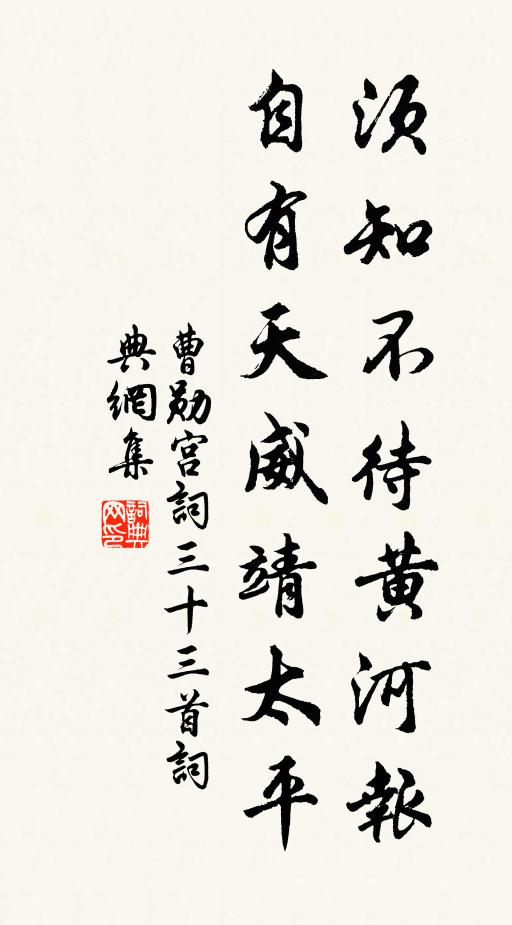 須知不待黄河報
自有天威靖太平
曹勛宫詞三十三首詞
典網集
詞典
网印